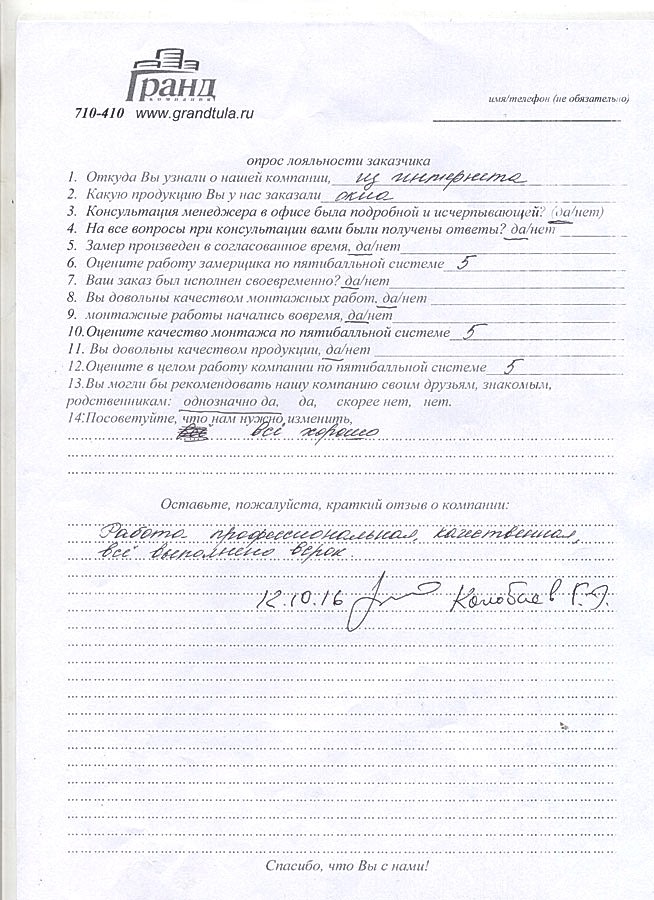 Гранд
компания
710-410 www.grandtula.ru
имя/телефон (не обязательно)
опрос лояльности заказчика
1. Откуда Вы узнали о нашей компании, из интернета
2. Какую продукцию Вы у нас заказали окна
3. Консультация менеджера в офисе была подробной и исчерпывающей? (да/нет)
4. На все вопросы при консультации вами были получены ответы? да/нет
5. Замер произведен в согласованное время, да/нет
6. Оцените работу замерщика по пятибалльной системе 5
7. Ваш заказ был исполнен своевременно? да/нет
8. Вы довольны качеством монтажных работ, да/нет
9. монтажные работы начались вовремя, да/нет
10.Оцените качество монтажа по пятибалльной системе 5
11. Вы довольны качеством продукции, да/нет
12.Оцените в целом работу компании по пятибалльной системе 5
13.Вы могли бы рекомендовать нашу компанию своим друзьям, знакомым,
родственникам: однозначно да, да, скорее нет, нет.
14.Посоветуйте, что нам нужно изменить,
всё хорошо
Оставьте, пожалуйста, краткий отзыв о компании:
Работа профессиональная, качественная,
всё выполнено в срок.
12.10.16
Спасибо, что Вы с нами!